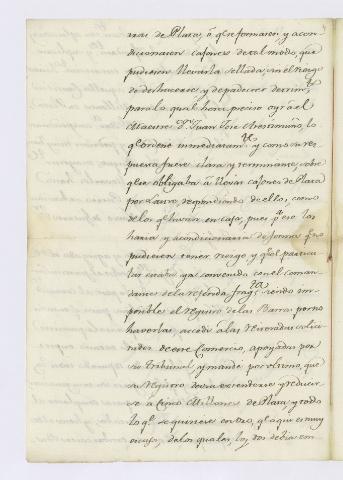 rras de Plata, ó q.e reformasen y acon-
dicionasen cajones de tal modo, que
pudiesen llevarla sellada, sin el riesgo
de deshacerse, y de padecer detrim.to
para lo qual herá preciso oyr á el
Maestre D.n Juan José Aresti, lo
q.e ordené inmediatam.te y con su res-
puesta fuese clara y terminante, sobre
que obligaba á llevar cajones de Plata
por Lastro, respondiendo de ellos, como
de los q.e hivan en caja, pues p.a eso los
haria y acondicionaria de forma q.e no
pudieran tener riesgo, y que el particu-
lar estaba ya convenido con el coman-
dante de la referida frag.ta siendo im-
posible el registro de las Barras por no
haverlas, accedi á las reiteradas solici-
tudes de este Comercio, apoyadas por
su Tribunal y mandé por ultimo, que
su registro devia extenderse y reducir-
se á cinco Millones de Plata, y todo
lo q.e se quisiese en oro, q.e aqui es muy
escaso, de los quales, los dos debia em-